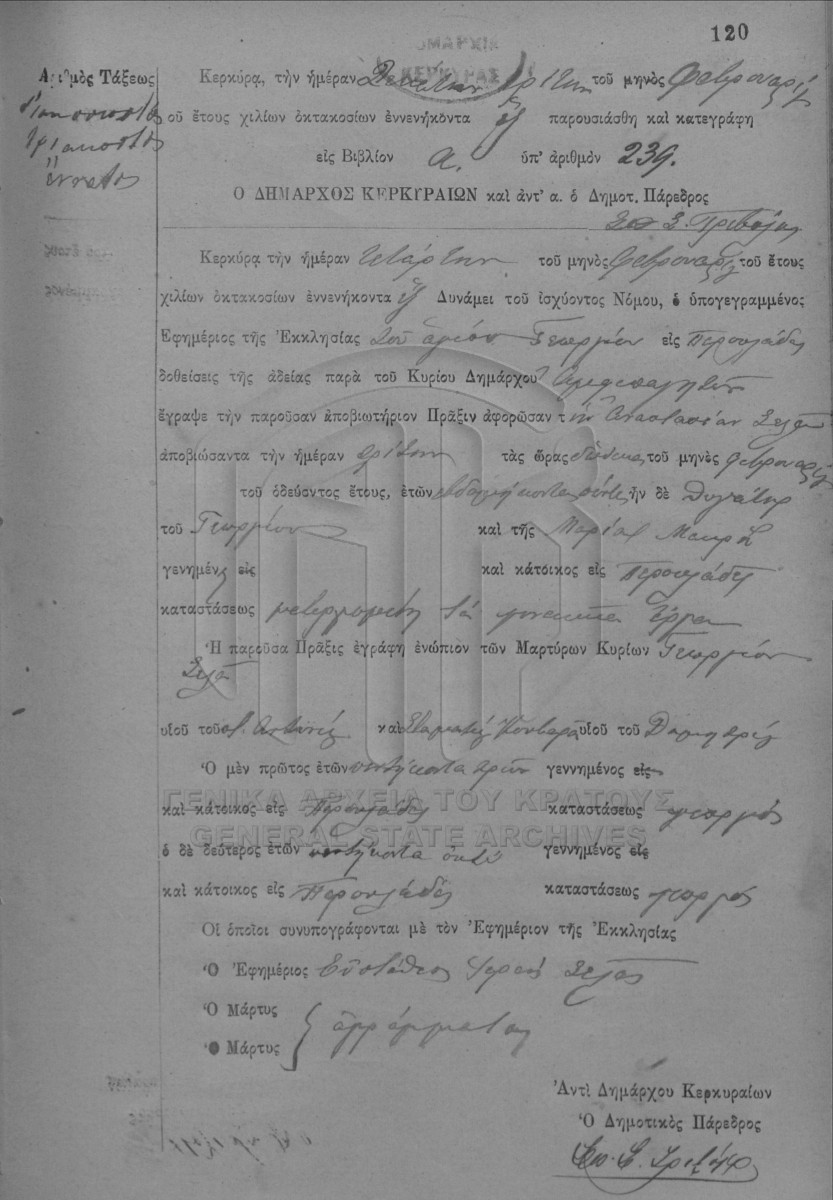 120
ΔΗΜΑΡΧΙΑ
ΚΕΡΚΥΡΑΣ
Αριθμὸς Τάξεως
διακοσιοστὸς
τριακοστὸς
ἔννατος
Κερκύρα, τὴν ἡμέραν Δεκάτην τρίτην τοῦ μηνὸς Φεβρουαρίου
οῦ ἔτους χιλίων ὀκτακοσίων ἐννενήκοντα ἓξ παρουσιάσθη καὶ κατεγράφη
εἰς Βιβλίον α. ὑπ' ἀριθμὸν 239.
Ο ΔΗΜΑΡΧΟΣ ΚΕΡΚΥΡΑΙΩΝ καὶ ἀντ' α. ὁ Δημοτ. Πάρεδρος
Κερκύρα τὴν ἡμέραν τετάρτην τοῦ μηνὸς Φεβρουαρίου τοῦ ἔτους
χιλίων ὀκτακοσίων ἐννενήκοντα ἓξ Δυνάμει τοῦ ἰσχύοντος Νόμου, ὁ ὑπογεγραμμένος
Εφημέριος τῆς Ἐκκλησίας τοῦ ἁγίου Γεωργίου εἰς Περουλάδες
δοθείσεις τῆς ἀδείας παρὰ τοῦ Κυρίου Δημάρχου
ἔγραψε τὴν παροῦσαν ἀποβιωτήριον Πρᾶξιν ἀφορῶσαν τὴν Ἀναστασίαν
ἀποβιώσαντα τὴν ἡμέραν τρίτην τὰς ὥρας δώδεκα τοῦ μηνὸς Φεβρουαρίου
τοῦ ὁδεύοντος ἔτους, ἐτῶν ἑβδομήκοντα πέντε ἦν δὲ θυγάτηρ
τοῦ Γεωργίου καὶ τῆς Μαρίας
γενημένη εἰς καὶ κάτοικος εἰς Περουλάδες
καταστάσεως μετερχομένη τὰ γυναικεῖα ἔργα
Ἡ παροῦσα Πρᾶξις ἐγράφη ἐνώπιον τῶν Μαρτύρων Κυρίων Γεωργίου
υἱοῦ τοῦ καὶ Σταματίου υἱοῦ τοῦ Δημητρίου
Ὁ μὲν πρῶτος ἐτῶν πεντήκοντα τριῶν γεννημένος εἰς
καὶ κάτοικος εἰς Περουλάδες καταστάσεως γεωργός
ὁ δὲ δεύτερος ἐτῶν πεντήκοντα ὀκτὼ γεννημένος εἰς
καὶ κάτοικος εἰς Περουλάδες καταστάσεως γεωργός
Οἱ ὁποῖοι συνυπογράφονται μὲ τὸν Ἐφημέριον τῆς Ἐκκλησίας
Ὁ Ἐφημέριος Εὐστάθιος Ἱερεὺς
Ὁ Μάρτυς
Ὁ Μάρτυς
ἀγράμματοι
ΓΕΝΙΚΑ ΑΡΧΕΙΑ ΤΟΥ ΚΡΑΤΟΥΣ
GENERAL STATE ARCHIVES
Ἀντὶ Δημάρχου Κερκυραίων
Ὁ Δημοτικὸς Πάρεδρος